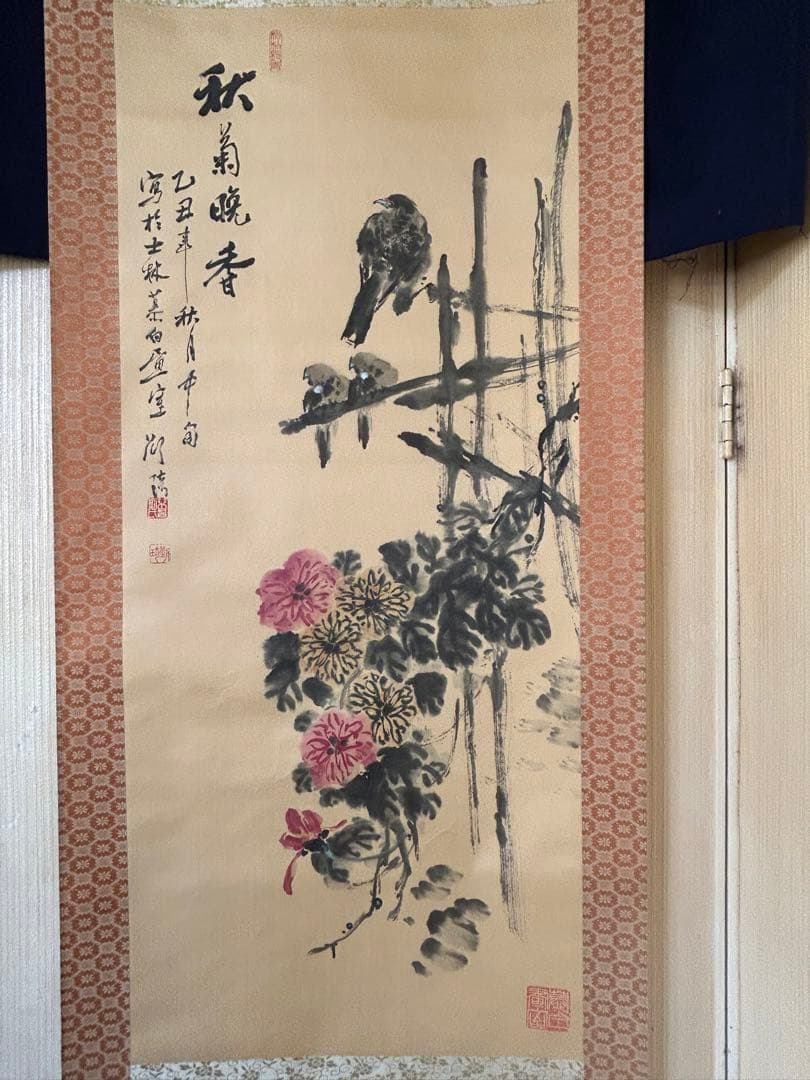 秋菊晚香
乙丑年秋月中旬
寫於士林慕白廬 靳